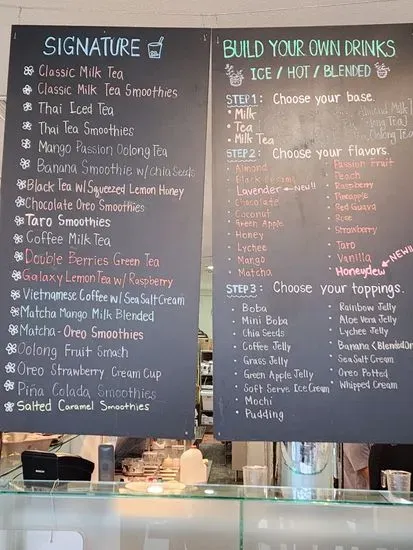 SIGNATURE
Classic Milk Tea
Classic Milk Tea Smoothies
Thai Iced Tea
Thai Tea Smoothies
Mango Passion Oolong Tea
Banana Smoothie w/chia Seeds
Black Tea w/ Squeezed Lemon Honey
Chocolate Oreo Smoothies
Taro Smoothies
Coffee Milk Tea
Double Berries Green Tea
Galaxy Lemon Tea w/ Raspberry
Vietnamese Coffee w/ Sea Salt Cream
Matcha Mango Milk Blended
Matcha-Oreo Smoothies
Oolong Fruit Smash
Oreo Strawberry Cream Cup
Piña Colada Smoothies
Salted Caramel Smoothies
BUILD YOUR OWN DRINKS
ICE / HOT / BLENDED
STEP 1: Choose your base.
Milk
Tea
Milk Tea
Milk/
Tea)
Oolong Tea)
STEP 2: Choose your flavors.
Almond
Black
Lavender NEW!!
Chocolate
Coconut
Green Apple
Honey
Lychee
Mango
Matcha
Passion Fruit
Peach
Raspberry
Pineapple
Red Guava
Rose
Strawberry
Taro
Vanilla
Honeydew NEW!!
STEP 3: Choose your toppings.
Boba
Mini Boba
Chia Seeds
Coffee Jelly
Grass Jelly
Green Apple Jelly
Soft Serve Ice Cream
Mochi
Pudding
Rainbow Jelly
Aloe Vera Jelly
Lychee Jelly
Banana (Blended
Sea Salt Cream
Oreo
Whipped Cream